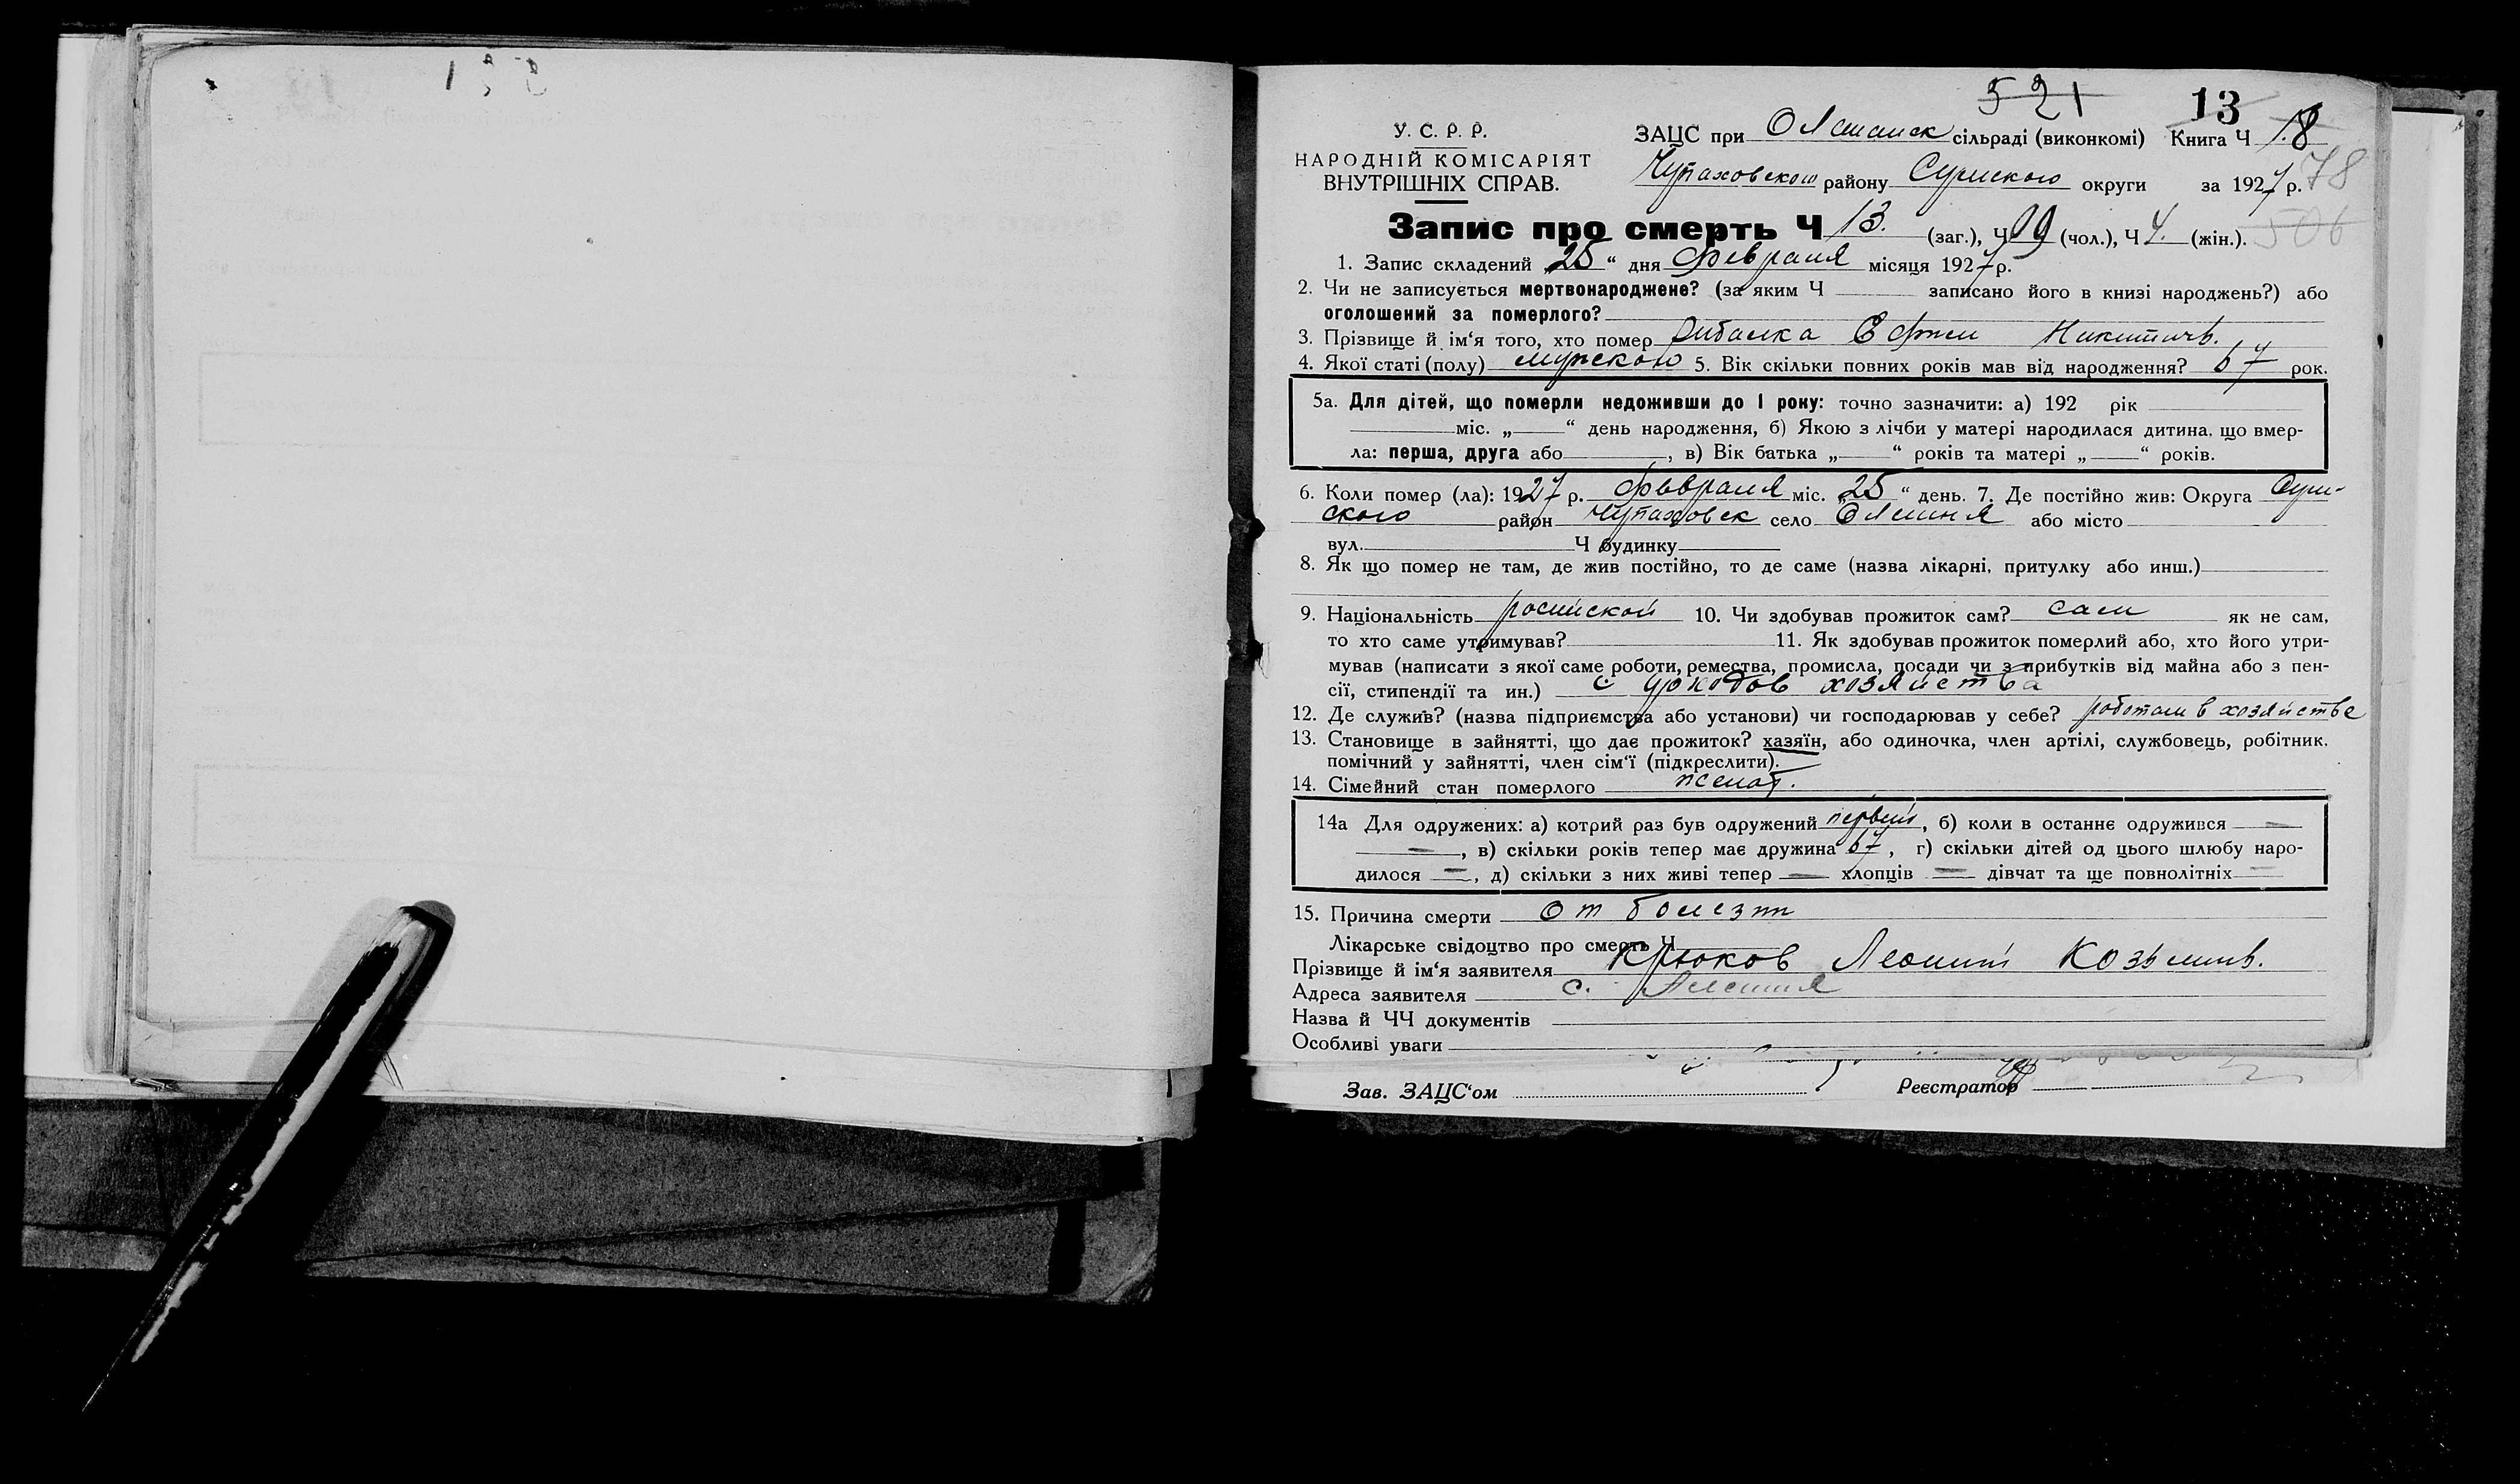 521 13
У. С. Р. Р. ЗАЦС при Олешанск сільраді (виконкомі) Книга Ч 18
НАРОДНІЙ КОМІСАРІЯТ
ВНУТРІШНІХ СПРАВ.
Чупаховского району Сумского округи за 1927 р. 78
506
Запис про смерть Ч 13. (заг.), Ч 09 (чол.), Ч 4. (жін.).
1. Запис складений „25“ дня февраля місяця 1927 р.
2. Чи не записується мертвонароджене? (за яким Ч записано його в книзі народжень?) або
оголошений за померлого?
3. Прізвище й ім‘я того, хто помер Рибалка Никитичь.
4. Якої статі (полу) мужского 5. Вік скільки повних років мав від народження? 67 рок.
5а. Для дітей, що померли недоживши до 1 року: точно зазначити: а) 192 рік
міс. „ “ день народження, б) Якою з лічби у матері народилася дитина, що вмер-
ла: перша, друга або , в) Вік батька „ “ років та матері „ “ років.
6. Коли помер (ла): 1927 р. февраля міс. „25“ день. 7. Де постійно жив: Округа Сум-
ского район Чупаховск село Олешня або місто
вул. Ч будинку
8. Як що помер не там, де жив постійно, то де саме (назва лікарні, притулку або инш.)
9. Національність росийской 10. Чи здобував прожиток сам? сам як не сам,
то хто саме утримував? 11. Як здобував прожиток померлий або, хто його утри-
мував (написати з якої саме роботи, ремества, промисла, посади чи з прибутків від майна або з пен-
сії, стипендії та ин.) с хозяйства
12. Де служив? (назва підприємства або установи) чи господарював у себе? роботал в хозяйстве
13. Становище в зайнятті, що дає прожиток? хазяїн, або одиночка, член артілі, службовець, робітник,
помічний у зайнятті, член сім‘ї (підкреслити).
14. Сімейний стан померлого женат.
14а Для одружених: а) котрий раз був одружений первый, б) коли в останнє одружився —
—, в) скільки років тепер має дружина 67, г) скільки дітей од цього шлюбу наро-
дилося —, д) скільки з них живі тепер — хлопців — дівчат та ще повнолітніх —
15. Причина смерти от болезни
Лікарське свідоцтво про смерть Ч
Прізвище й ім‘я заявителя Крюков Леонтий Козьмив.
Адреса заявителя с. Алешня
Назва й ЧЧ документів
Особливі уваги
Зав. ЗАЦС‘ом Реєстратор